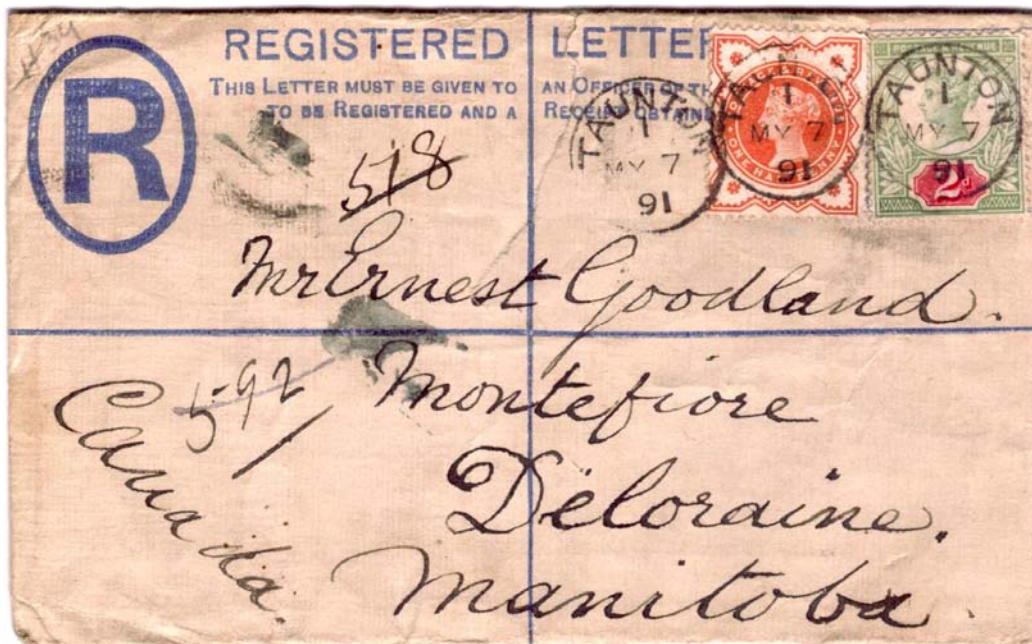 REGISTERED LETTER
THIS LETTER MUST BE GIVEN TO AN OFFICER OF TH
TO BE REGISTERED AND A RECEIPT OBTAINE
R
518
TAUNTON
1
MY 7
91
TAUNTON
1
MY 7
91
ONE HALFPENNY
TAUNTON
1
MY 7
91
2d
Mr Ernest Goodland.
592
Montefiore
Deloraine.
Manitoba.
Canada.